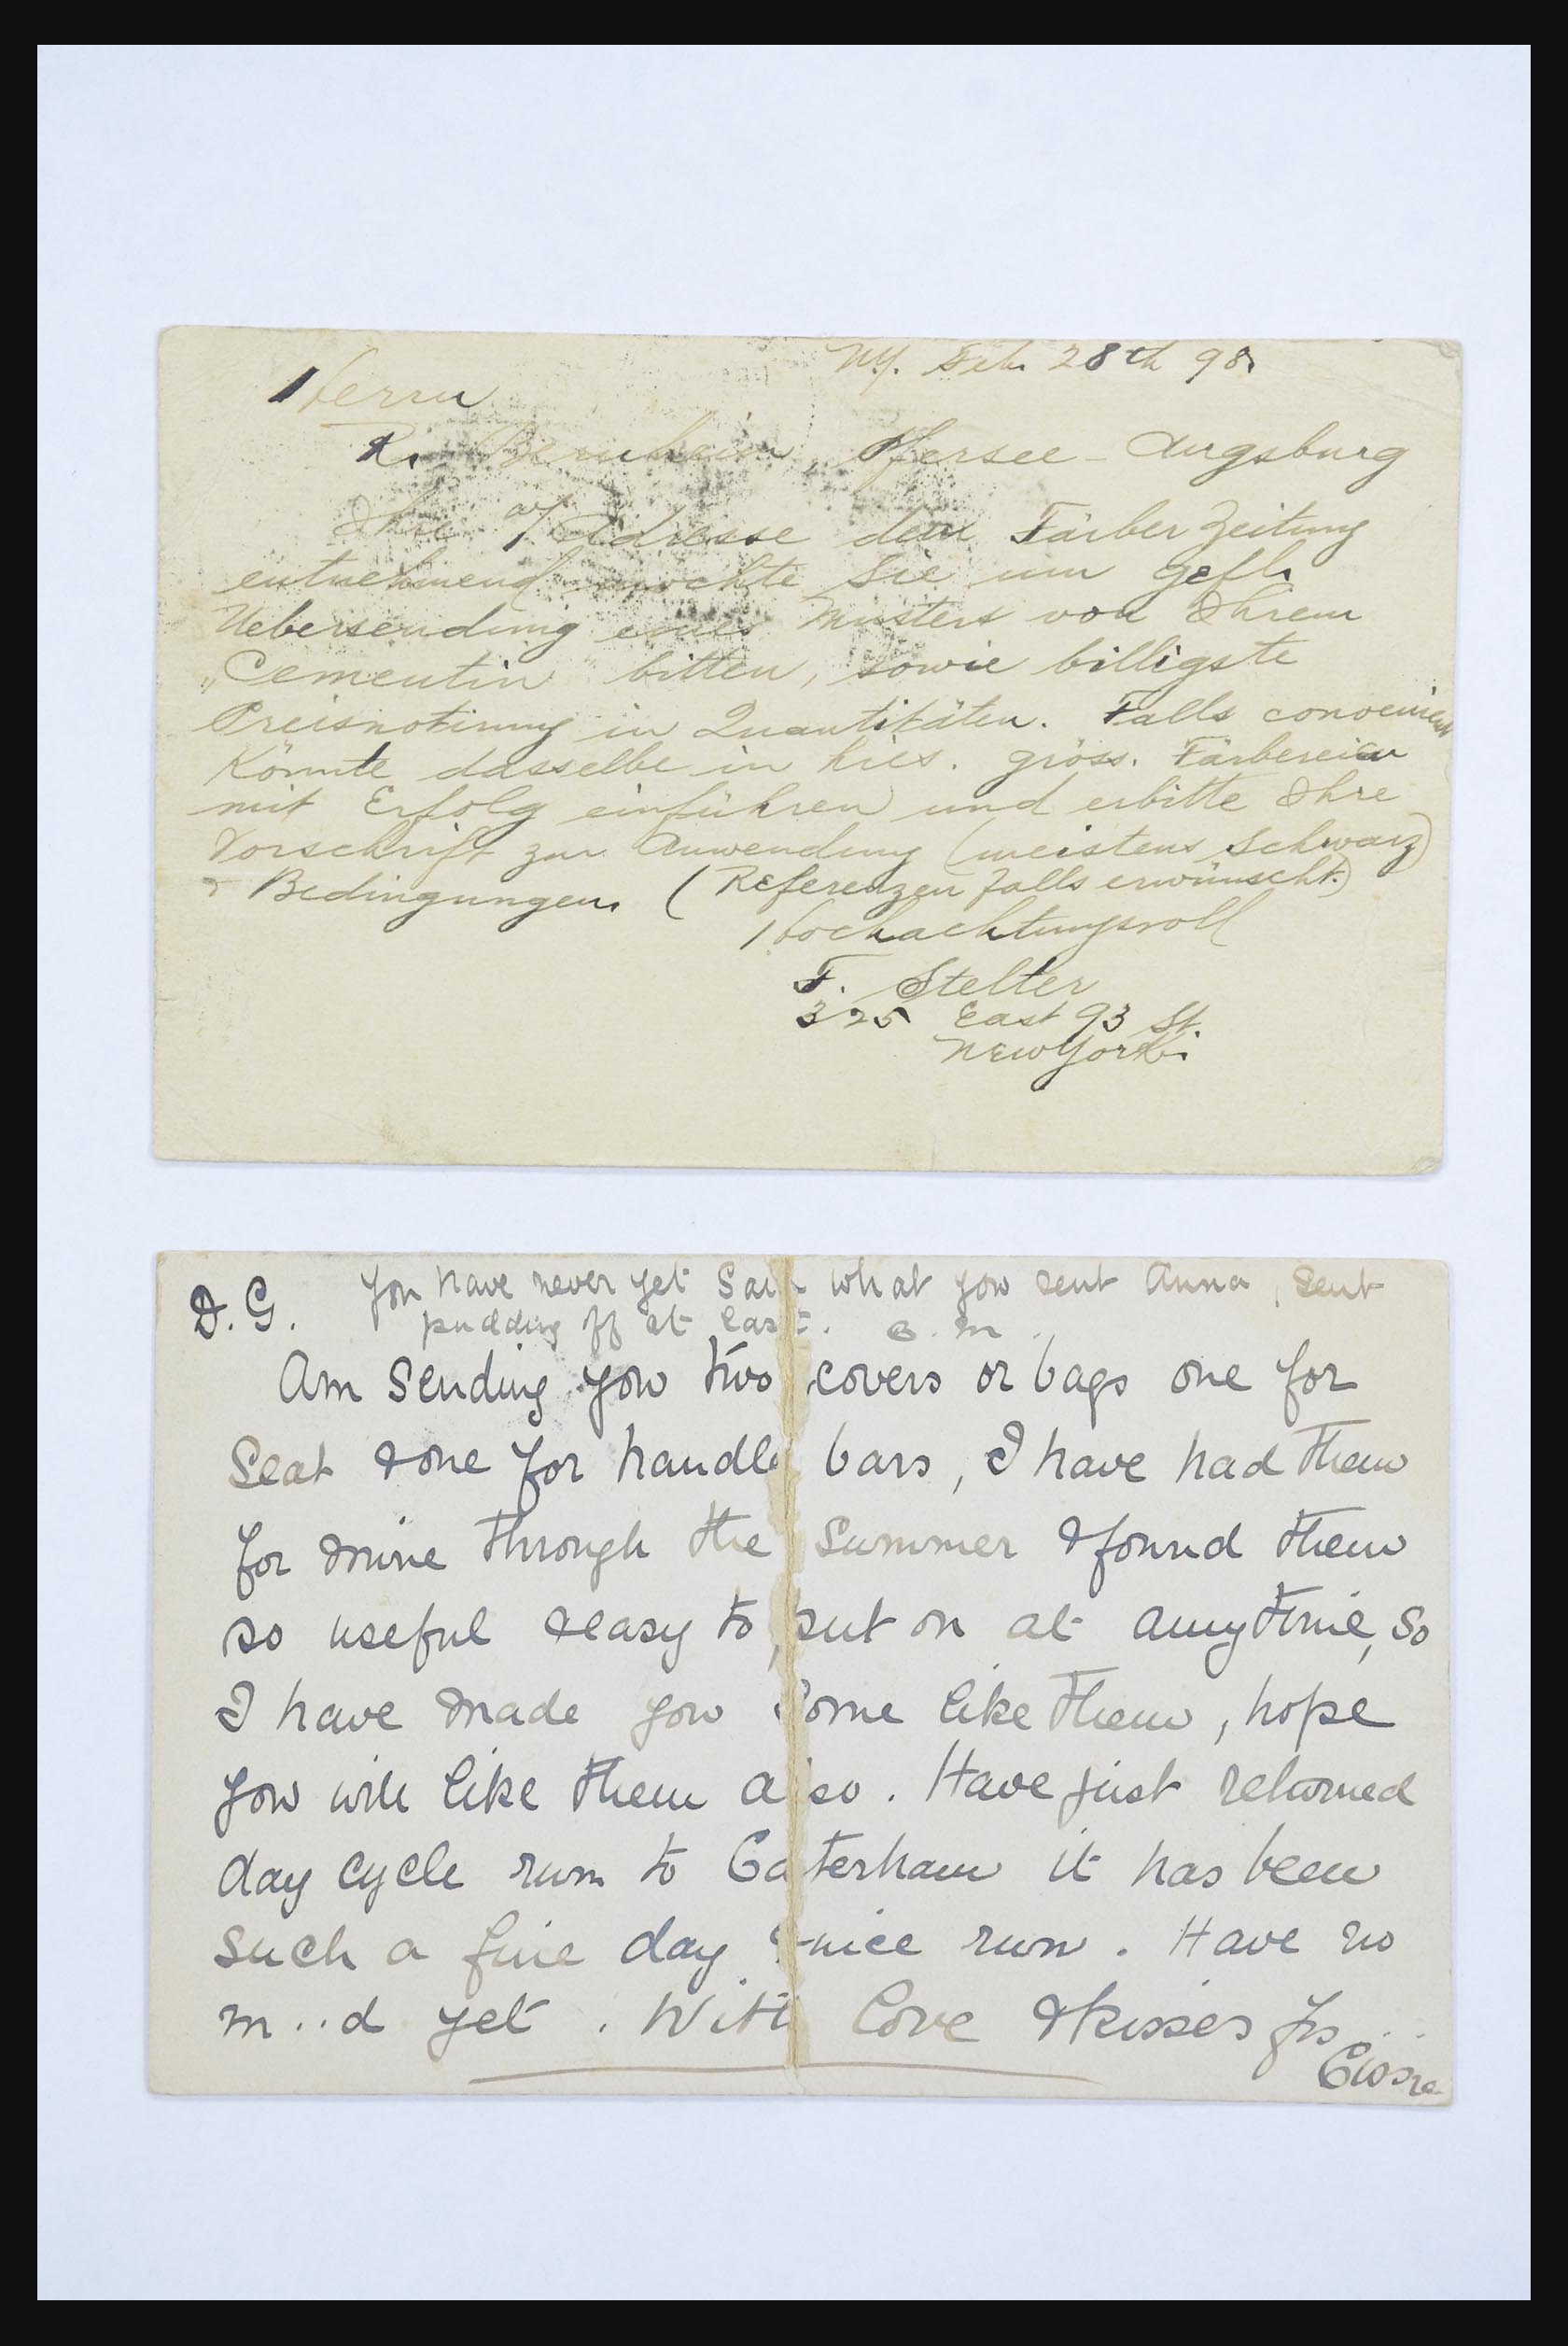 N.Y. Feb. 28th 98.
Herrn
R. Bernheim, Pfersee - Augsburg
Ihre Adresse der Färber Zeitung
entnehmend möchte Sie um gefl.
Uebersendung eines Musters von Ihrem
„Cementin" bitten, sowie billigste
Preisnotirung in Quantitäten. Falls convenient
könnte dasselbe in hies. gröss. Färbereien
mit Erfolg einführen und erbitte Ihre
Vorschrift zur Anwendung (meistens schwarz)
& Bedingungen. (Referenzen falls erwünscht.)
Hochachtungsvoll
F. Stelter
325 East 93 St.
New York.
D.G. You have never yet said what you sent Anna, sent
pudding off at last. B.M.
Am sending you two covers or bags one for
seat & one for handle bars, I have had them
for mine through the summer & found them
so useful & easy to put on at anytime, so
I have made you some like them, hope
you will like them also. Have just returned
day cycle run to Caterham it has been
such a fine day & nice run. Have no
m..d yet. With love & kisses frs
Cissie